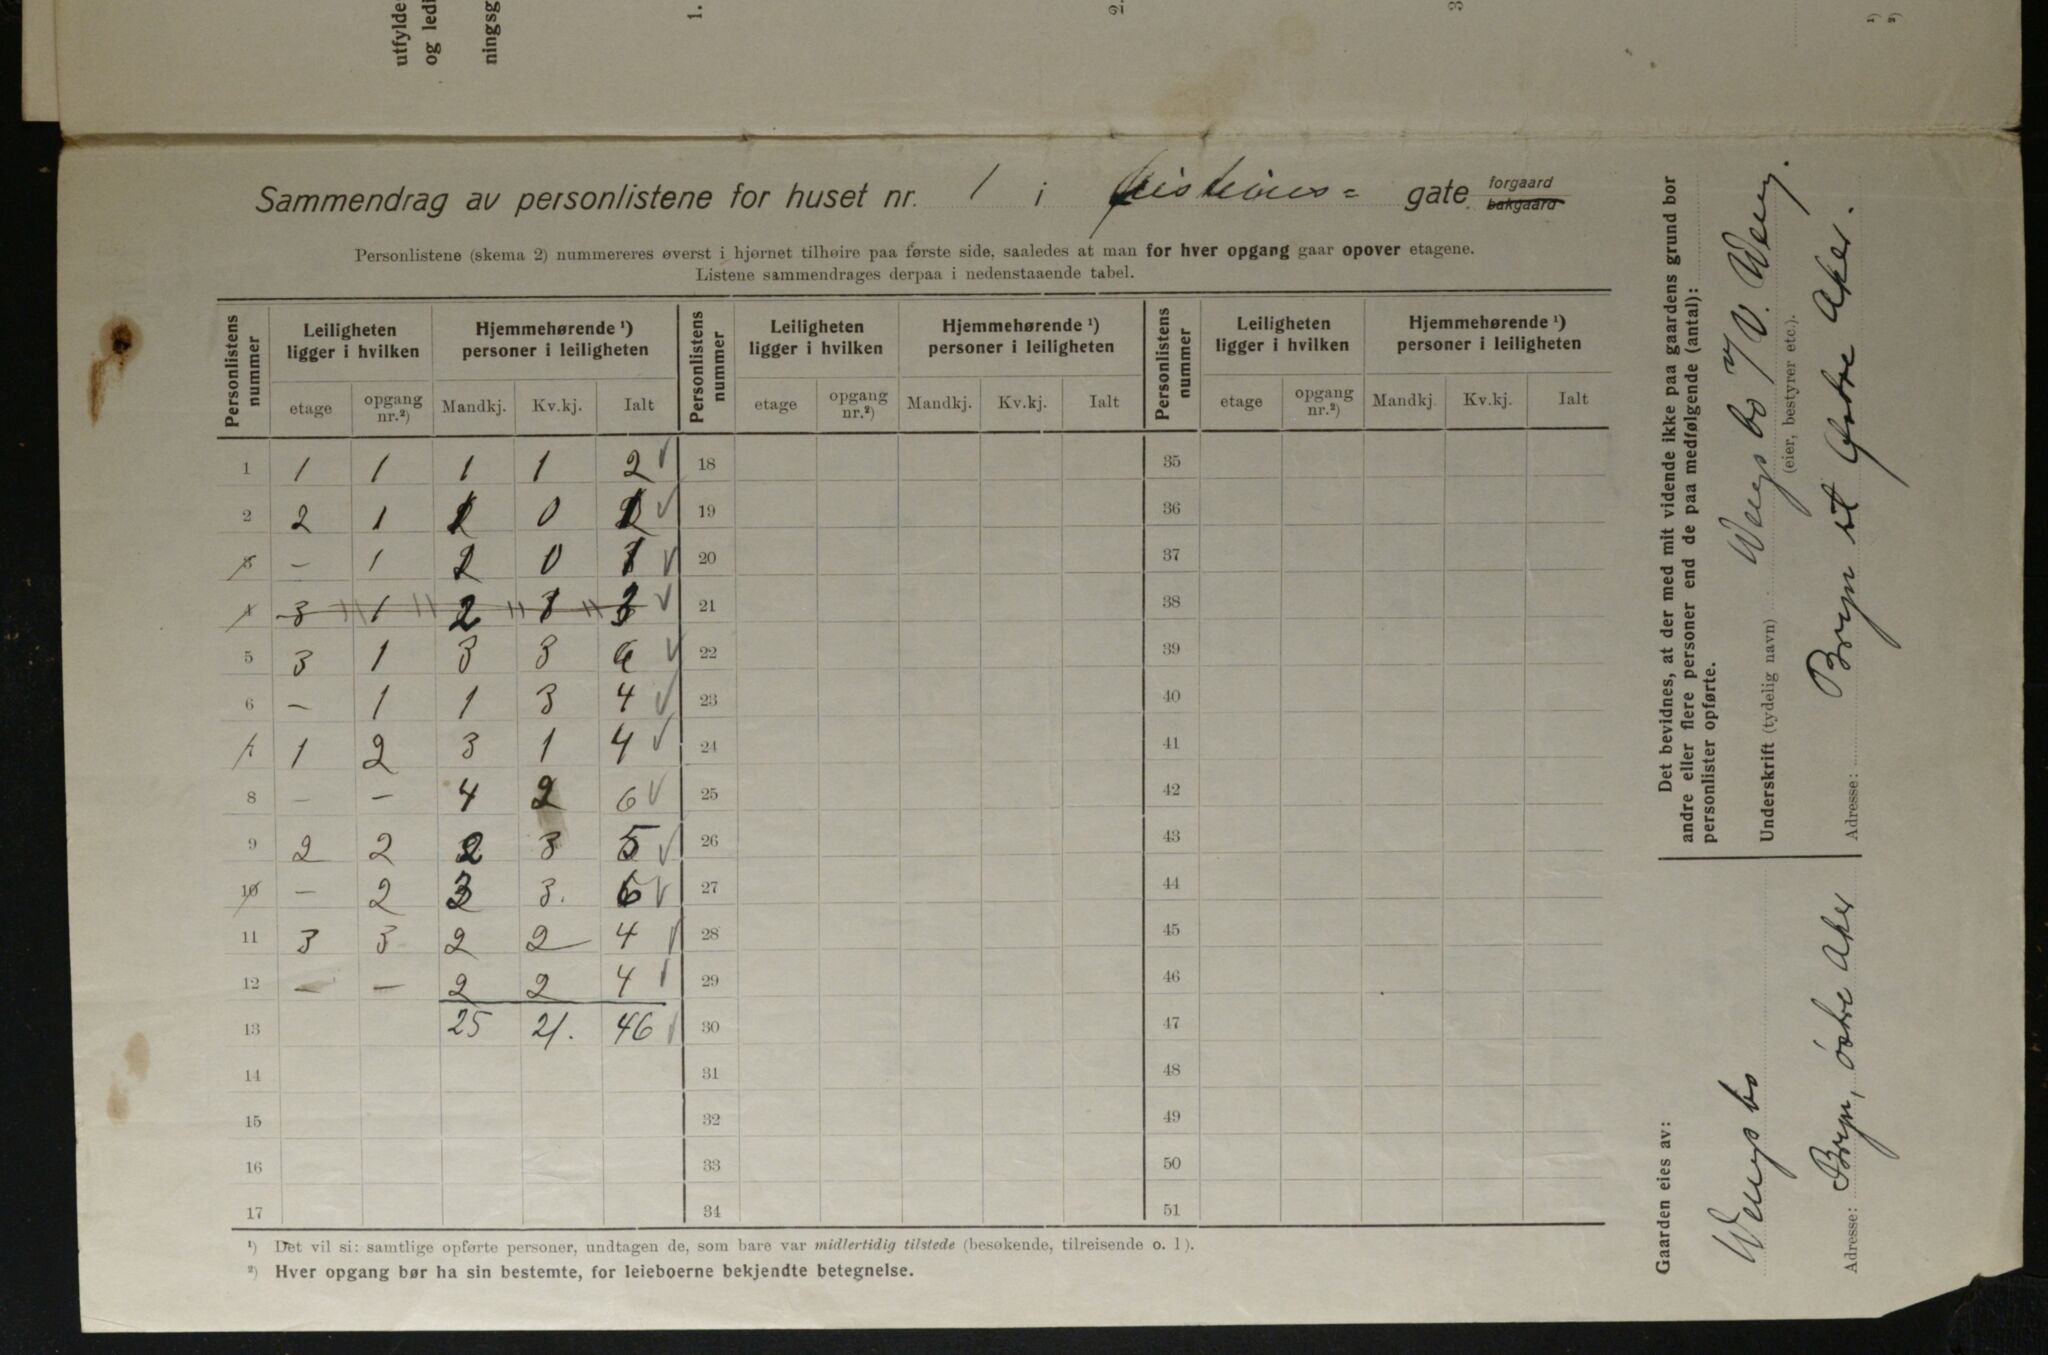 utfylde
og ledi
ningsg
1.
2.
3
¹)
²)
Sammendrag av personlistene for huset nr. 1 i gate forgaard bakgaard
Personlistene (skema 2) nummereres øverst i hjørnet tilhøire paa første side, saaledes at man for hver opgang gaar opover etagene.
Listene sammendrages derpaa i nedenstaaende tabel.
Personlistens nummer | Leiligheten ligger i hvilken | Hjemmehørende ¹) personer i leiligheten | Personlistens nummer | Leiligheten ligger i hvilken | Hjemmehørende ¹) personer i leiligheten | Personlistens nummer | Leiligheten ligger i hvilken | Hjemmehørende ¹) personer i leiligheten
etage | opgang nr.²) | Mandkj. | Kv.kj. | Ialt | etage | opgang nr.²) | Mandkj. | Kv.kj. | Ialt | etage | opgang nr.²) | Mandkj. | Kv.kj. | Ialt
1 | 1 | 1 | 1 | 1 | 2 ✓ | 18 | 35
2 | 2 | 1 | 1 | 0 | 1 ✓ | 19 | 36
3 | – | 1 | | 0 | 1 ✓ | 20 | 37
4 | 3 | 1 | 2 | 1 | 3 ✓ | 21 | 38
5 | 3 | 1 | 3 | 3 | 6 ✓ | 22 | 39
6 | – | 1 | 1 | 3 | 4 ✓ | 23 | 40
7 | 1 | 2 | 3 | 1 | 4 ✓ | 24 | 41
8 | – | – | 4 | 2 | 6 ✓ | 25 | 42
9 | 2 | 2 | 2 | 3 | 5 ✓ | 26 | 43
10 | – | 2 | 3 | 3. | 6 ✓ | 27 | 44
11 | 3 | 3 | 2 | 2 | 4 ✓ | 28 | 45
12 | – | – | 2 | 2 | 4 ✓ | 29 | 46
13 | 25 | 21. | 46 ✓ | 30 | 47
14 | 31 | 48
15 | 32 | 49
16 | 33 | 50
17 | 34 | 51
¹) Det vil si: samtlige opførte personer, undtagen de, som bare var midlertidig tilstede (besøkende, tilreisende o. l).
²) Hver opgang bør ha sin bestemte, for leieboerne bekjendte betegnelse.
Det bevidnes, at der med mit vidende ikke paa gaardens grund bor
andre eller flere personer end de paa medfølgende (antal):
personlister opførte.
Underskrift (tydelig navn) Wengs bo v/ V. Weng.
(eier, bestyrer etc.).
Adresse: Bryn st Østre Aker.
Gaarden eies av:
Wengs bo
Adresse: Bryn, østre Aker